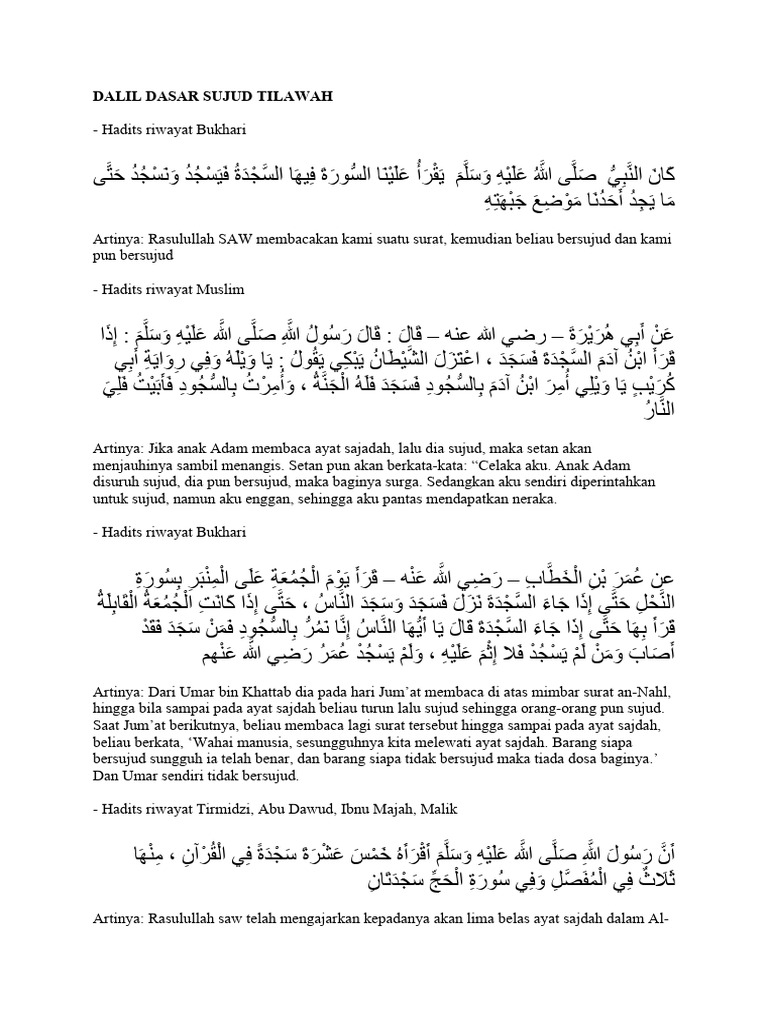 DALIL DASAR SUJUD TILAWAH
- Hadits riwayat Bukhari
كَانَ النَّبِيُّ صَلَّى اللَّهُ عَلَيْهِ وَسَلَّمَ يَقْرَأُ عَلَيْنَا السُّورَةَ فِيهَا السَّجْدَةُ فَيَسْجُدُ وَنَسْجُدُ حَتَّى
مَا يَجِدُ أَحَدُنَا مَوْضِعَ جَبْهَتِهِ
Artinya: Rasulullah SAW membacakan kami suatu surat, kemudian beliau bersujud dan kami
pun bersujud
- Hadits riwayat Muslim
عَنْ أَبِي هُرَيْرَةَ – رضي الله عنه – قَالَ : قَالَ رَسُولُ اللَّهِ صَلَّى اللَّه عَلَيْهِ وَسَلَّمَ : إِذَا
قَرَأَ ابْنُ آدَمَ السَّجْدَةَ فَسَجَدَ ، اعْتَزَلَ الشَّيْطَانُ يَبْكِي يَقُولُ : يَا وَيْلَهُ وَفِي رِوَايَةِ أَبِي
كُرَيْبٍ يَا وَيْلِي أُمِرَ ابْنُ آدَمَ بِالسُّجُودِ فَسَجَدَ فَلَهُ الْجَنَّةُ ، وَأُمِرْتُ بِالسُّجُودِ فَأَبَيْتُ فَلِيَ
النَّارُ
Artinya: Jika anak Adam membaca ayat sajadah, lalu dia sujud, maka setan akan
menjauhinya sambil menangis. Setan pun akan berkata-kata: “Celaka aku. Anak Adam
disuruh sujud, dia pun bersujud, maka baginya surga. Sedangkan aku sendiri diperintahkan
untuk sujud, namun aku enggan, sehingga aku pantas mendapatkan neraka.
- Hadits riwayat Bukhari
عن عُمَرَ بْنِ الْخَطَّابِ – رَضِي اللَّه عَنْه – قَرَأَ يَوْمَ الْجُمُعَةِ عَلَى الْمِنْبَرِ بِسُورَةِ
النَّحْلِ حَتَّى إِذَا جَاءَ السَّجْدَةَ نَزَلَ فَسَجَدَ وَسَجَدَ النَّاسُ ، حَتَّى إِذَا كَانَتِ الْجُمُعَةُ الْقَابِلَةُ
قَرَأَ بِهَا حَتَّى إِذَا جَاءَ السَّجْدَةَ قَالَ يَا أَيُّهَا النَّاسُ إِنَّا نَمُرُّ بِالسُّجُودِ فَمَنْ سَجَدَ فَقَدْ
أَصَابَ وَمَنْ لَمْ يَسْجُدْ فَلا إِثْمَ عَلَيْهِ ، وَلَمْ يَسْجُدْ عُمَرُ رَضِي اللَّه عَنْهم
Artinya: Dari Umar bin Khattab dia pada hari Jum’at membaca di atas mimbar surat an-Nahl,
hingga bila sampai pada ayat sajdah beliau turun lalu sujud sehingga orang-orang pun sujud.
Saat Jum’at berikutnya, beliau membaca lagi surat tersebut hingga sampai pada ayat sajdah,
beliau berkata, ‘Wahai manusia, sesungguhnya kita melewati ayat sajdah. Barang siapa
bersujud sungguh ia telah benar, dan barang siapa tidak bersujud maka tiada dosa baginya.’
Dan Umar sendiri tidak bersujud.
- Hadits riwayat Tirmidzi, Abu Dawud, Ibnu Majah, Malik
أَنَّ رَسُولَ اللَّهِ صَلَّى اللَّه عَلَيْهِ وَسَلَّمَ أَقْرَأَهُ خَمْسَ عَشْرَةَ سَجْدَةً فِي الْقُرْآنِ ، مِنْهَا
ثَلَاثٌ فِي الْمُفَصَّلِ وَفِي سُورَةِ الْحَجِّ سَجْدَتَانِ
Artinya: Rasulullah saw telah mengajarkan kepadanya akan lima belas ayat sajdah dalam Al-